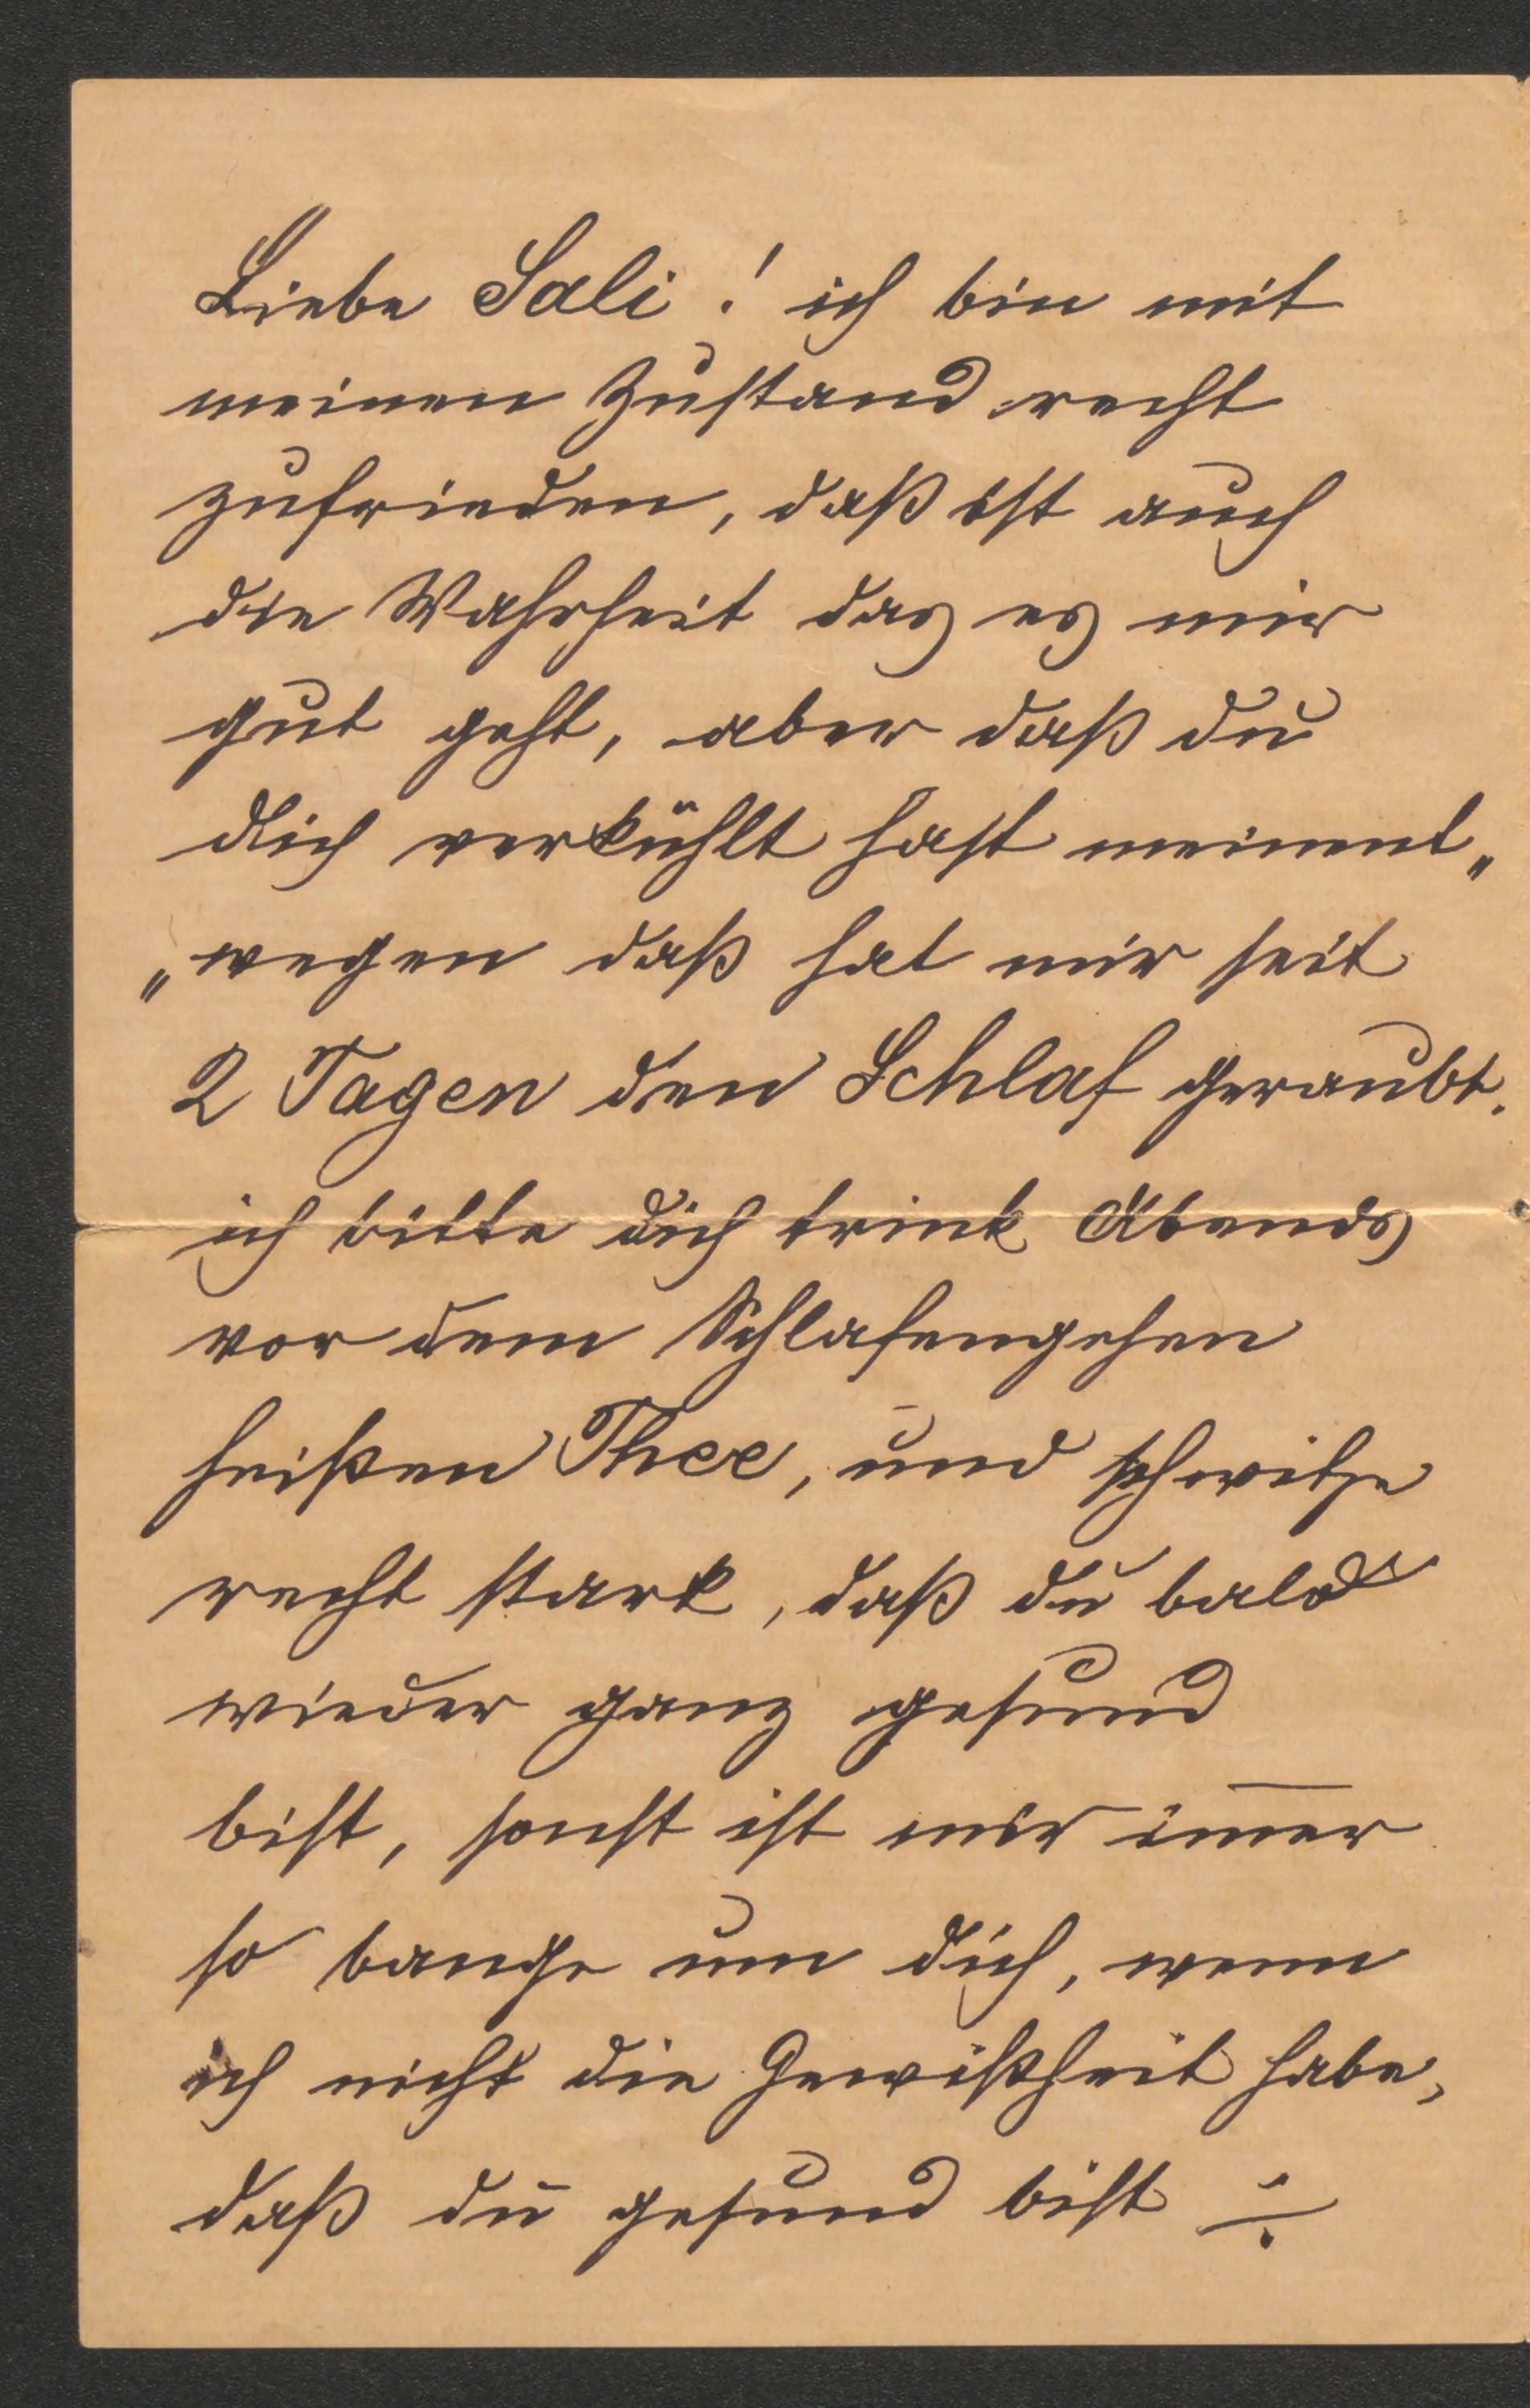 Liebe Sali! ich bin mit
meinen Zustand recht
zufrieden, daß ist auch
die Wahrheit das es mir
gut geht, aber daß du
dich verkühlt hast meinent„
„wegen daß hat mir seit
2 Tagen den Schlaf geraubt.
ich bitte dich trink Abends
vor dem Schlafengehen
heißen Thee, und schwitze
recht stark, daß du bald
wieder ganz gesund
bist, sonst ist mir im̅er
so bange um dich, wenn
ich nicht die Gewißheit habe,
daß du gesund bist ÷